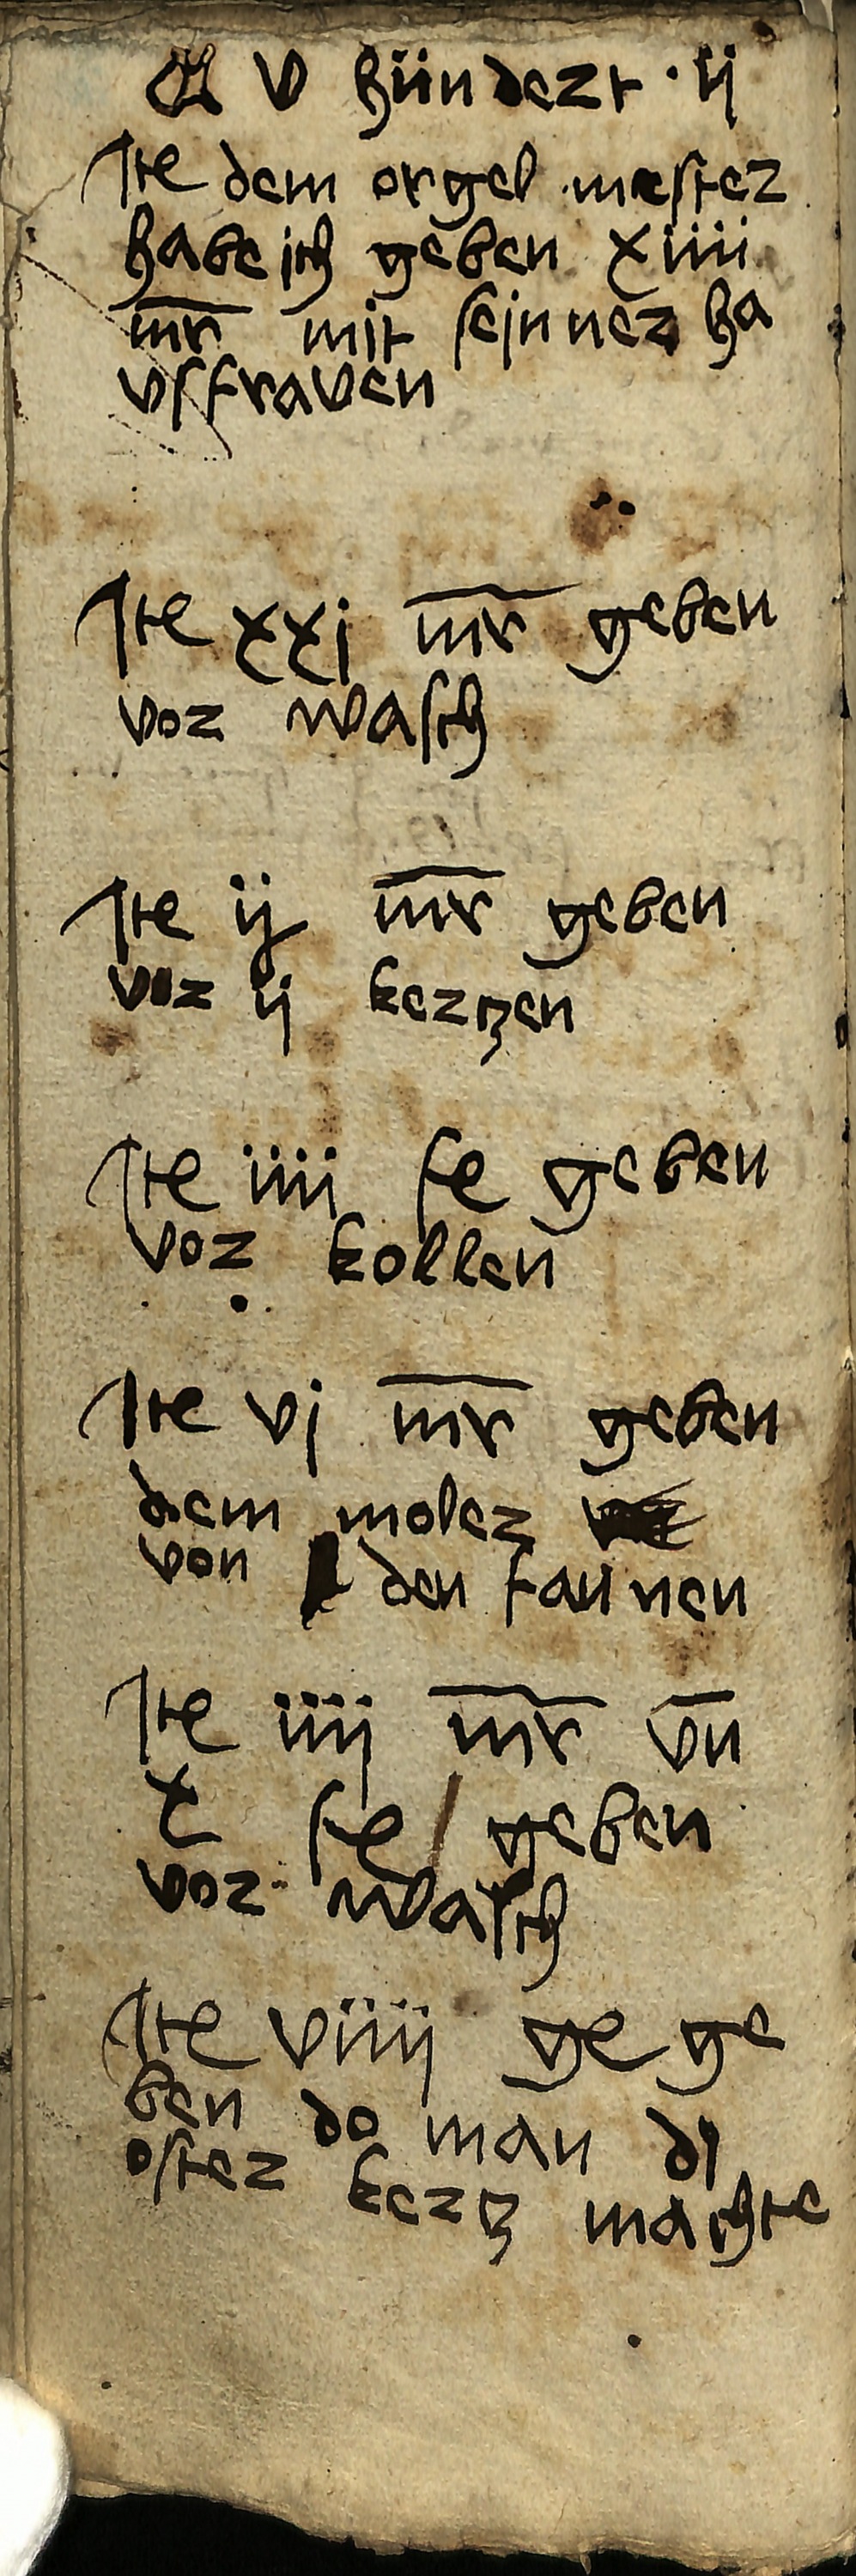 M v hündert · ij
Ite dem orgel mester
habe ich geben xiiii
mr mit sejnner ha
vsfraven
Ite xxj mr geben
vor wasch
Ite ij mr geben
vor ij kerczen
Ite iiii sc geben
vor kollen
Ite vj mr geben
dem moler
von den fannen
Ite iiij mr vn
x sc geben
vor wasch
Ite viiij gc ge
ben do man dy
oster kercz machte